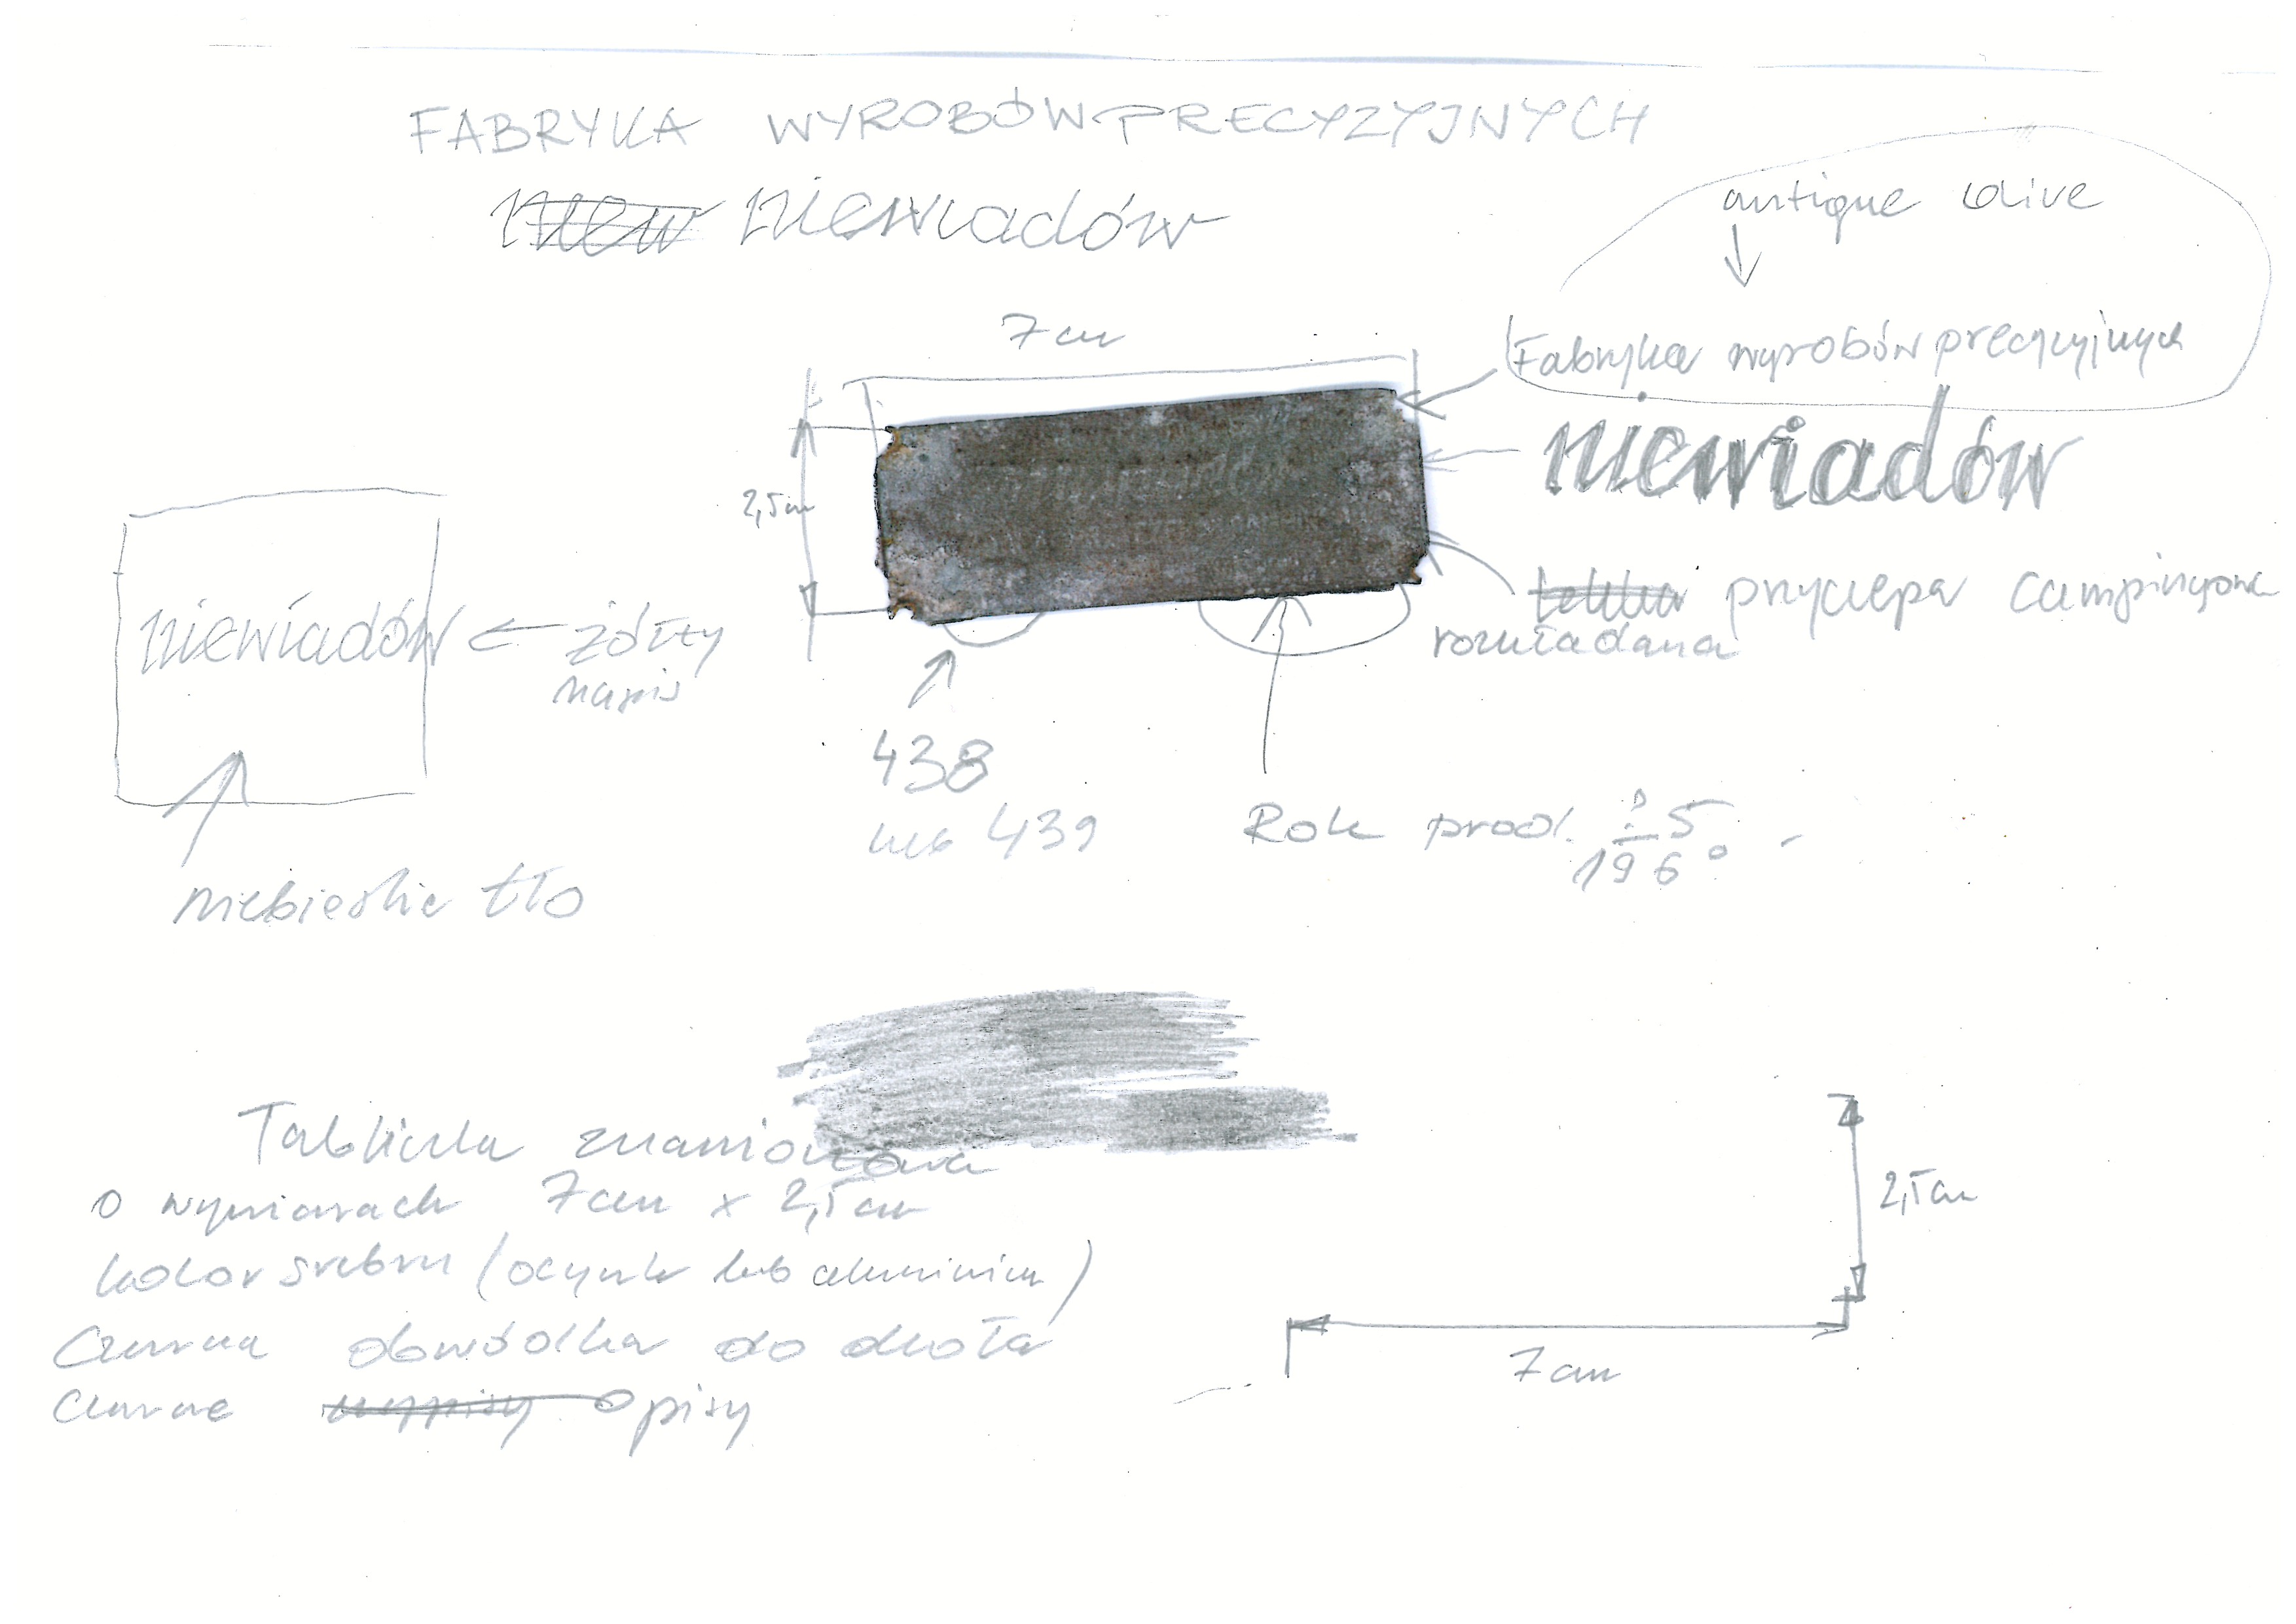 FABRYKA WYROBÓW PRECYZYJNYCH
niew niewiadów
antique olive
7 cm
Fabryka wyrobów precyzyjnych
niewiadów
2,5 cm
przyczepa campingowa
rozkładana
niewiadów
żółty
napis
438
lub 439
Rok prod.
5
196
niebieskie tło
Tabliczka znamionowa
o wymiarach 7cm x 2,5 cm
kolor srebrny (ocynk lub aluminium)
Czarna obwódka do okoła
Czarne wypisy opisy
2,5 cm
7 cm